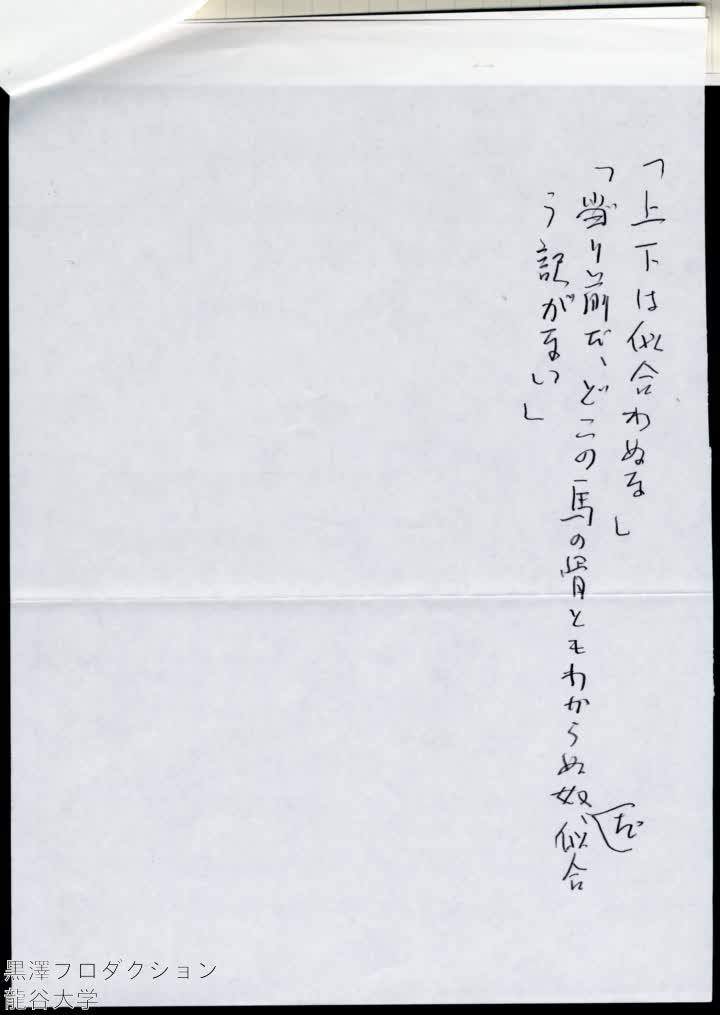 「上下は似合わぬな」
「当り前だ、どこの馬の骨ともわからぬ奴だ、似合
う訳がない」
黒澤プロダクション
龍谷大学